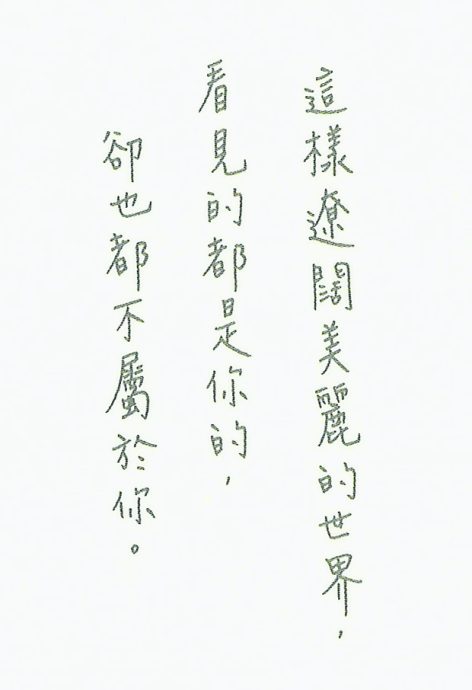 這樣遼闊美麗的世界，
看見的都是你的，
卻也都不屬於你。